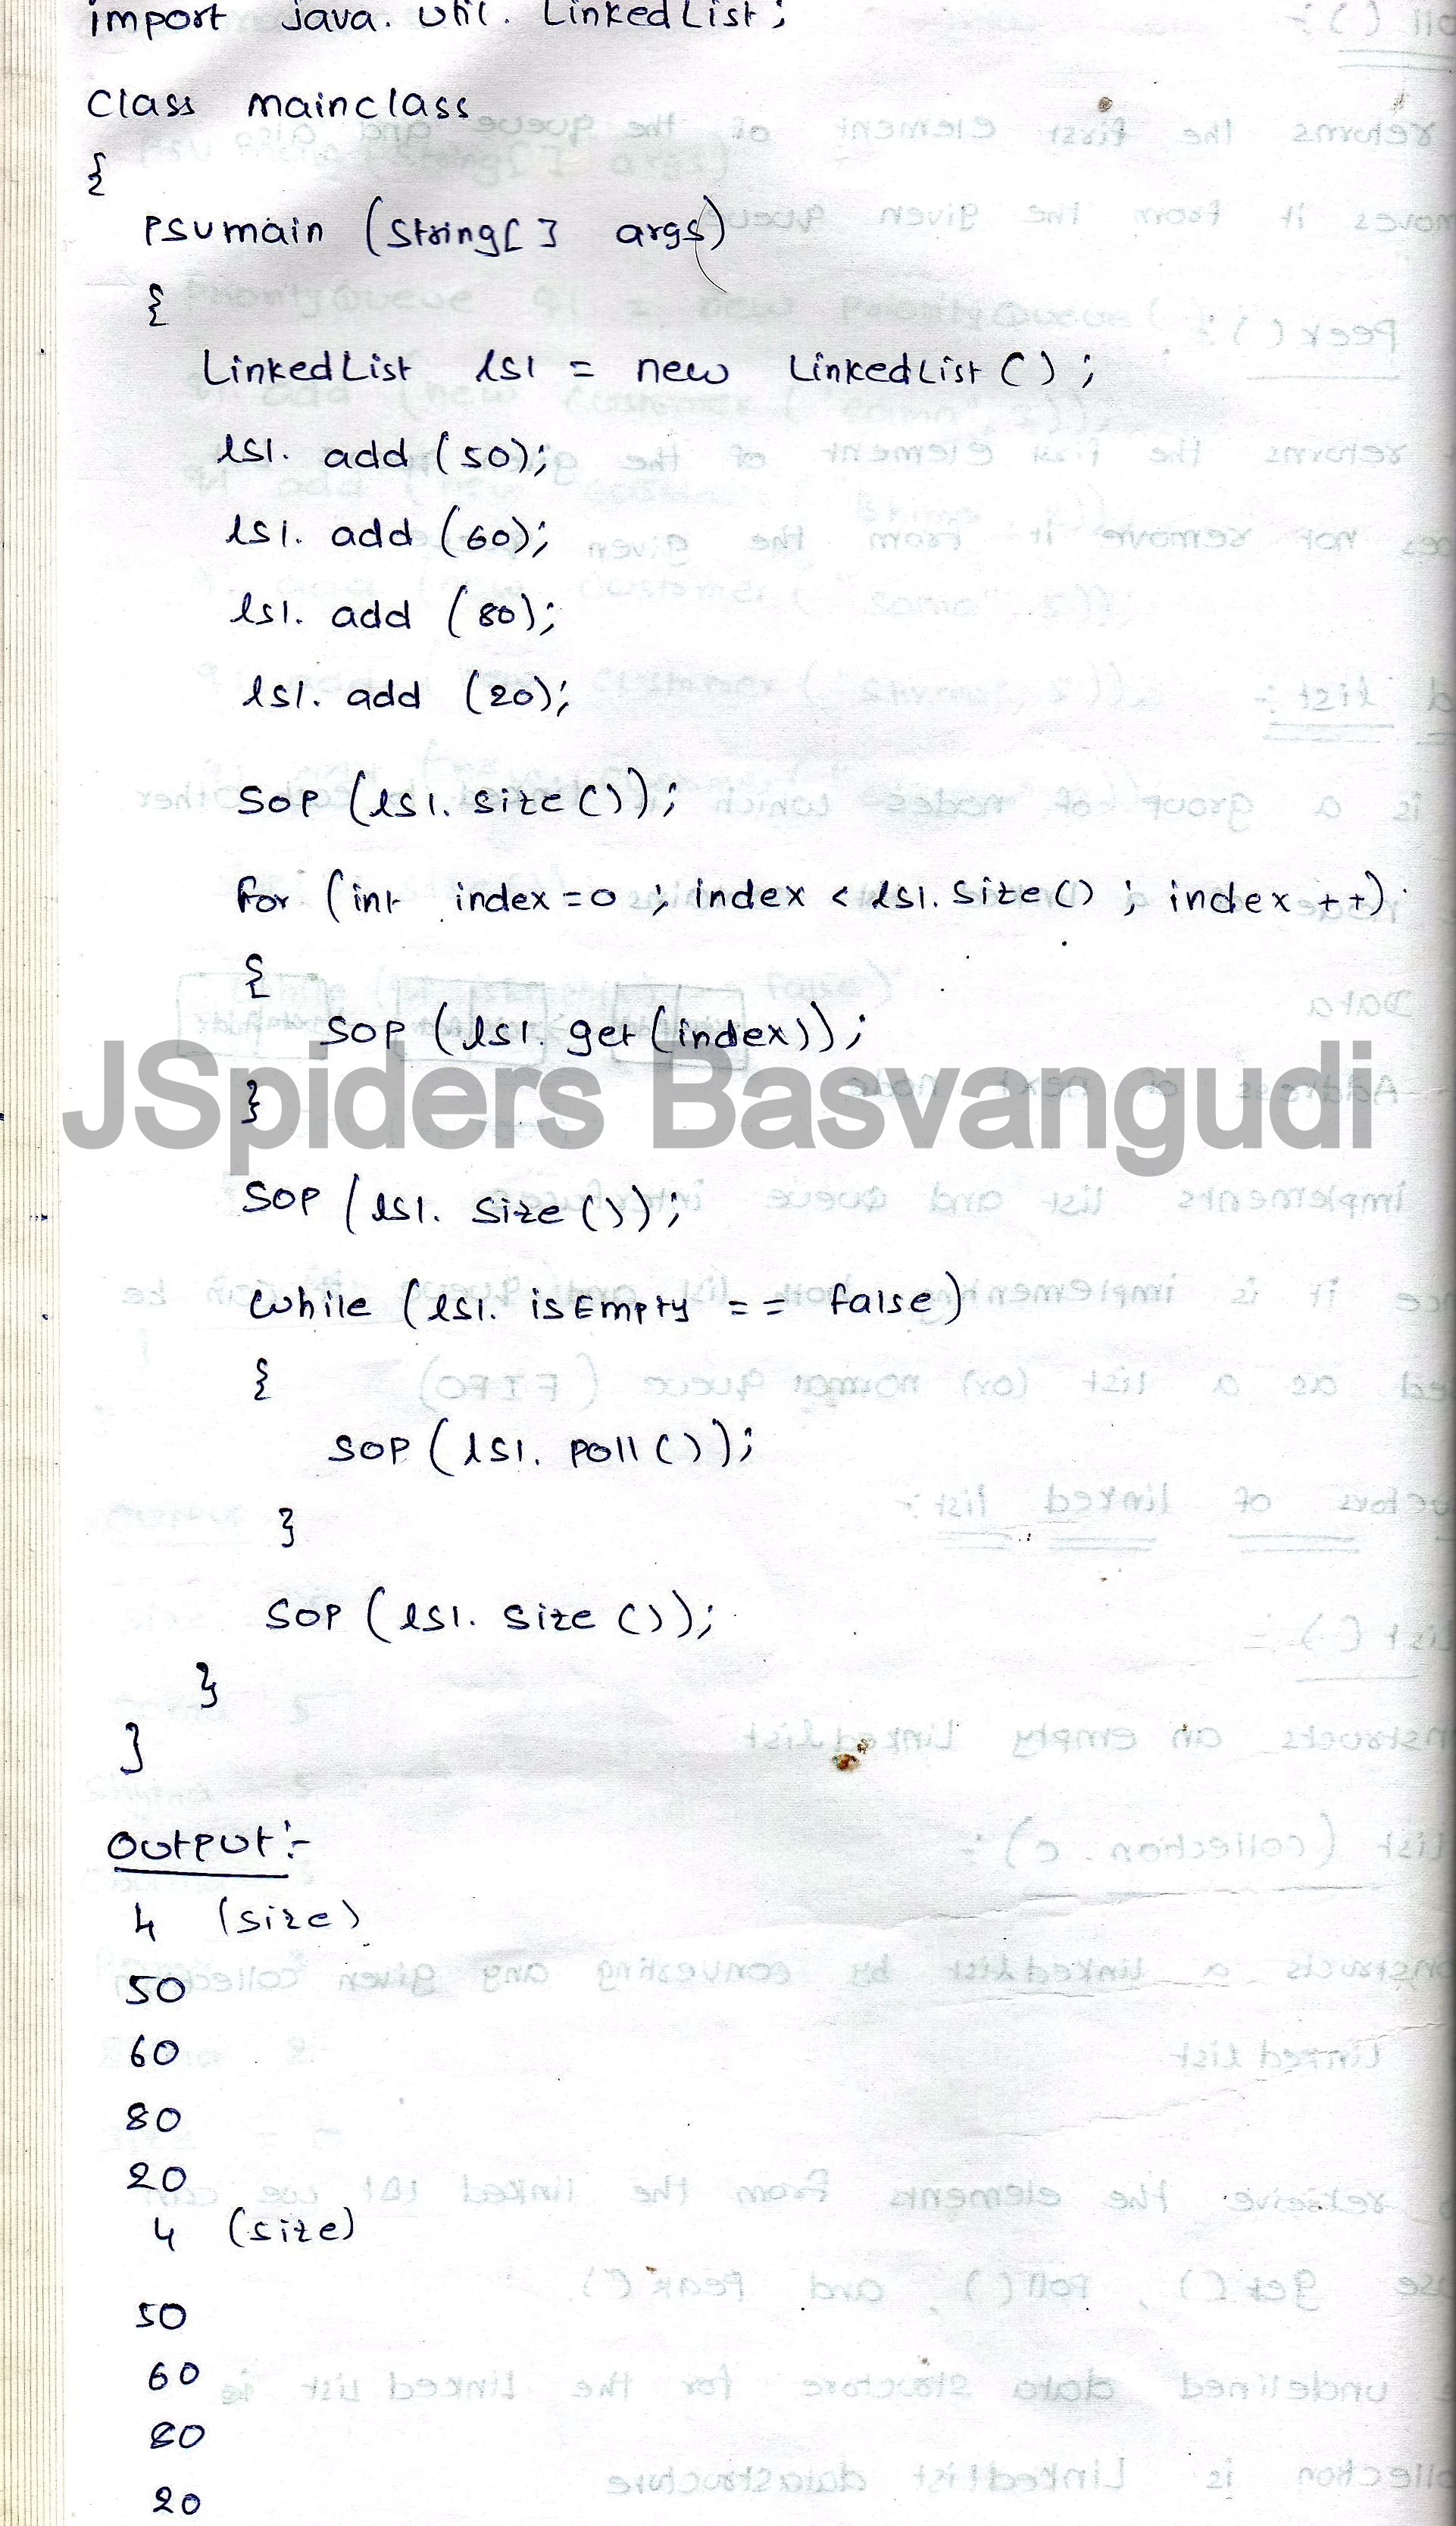 import java. util. LinkedList;
class mainclass
{
PSVmain (String[] args)
{
LinkedList ls1 = new LinkedList();
ls1. add (50);
ls1. add (60);
ls1. add (80);
ls1. add (20);
SOP (ls1. size());
for (int index=0 ; index < ls1. size() ; index ++)
{
SOP (ls1. get(index));
}
JSpiders Basvangudi
SOP (ls1. size());
while (ls1. isEmpty == false)
{
SOP (ls1. poll());
}
SOP (ls1. size ());
}
}
Output:-
4 (size)
50
60
80
20
4 (size)
50
60
80
20